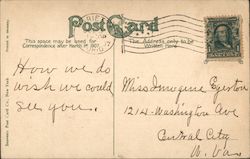 Post Card
This space may be used for
Correspondence after March 1st 1907.
The Address only to be
Written Here.
How we do
wish we could
see you.
Miss Imogene Egerton
1214 - Washington Ave
Central City
W. Va